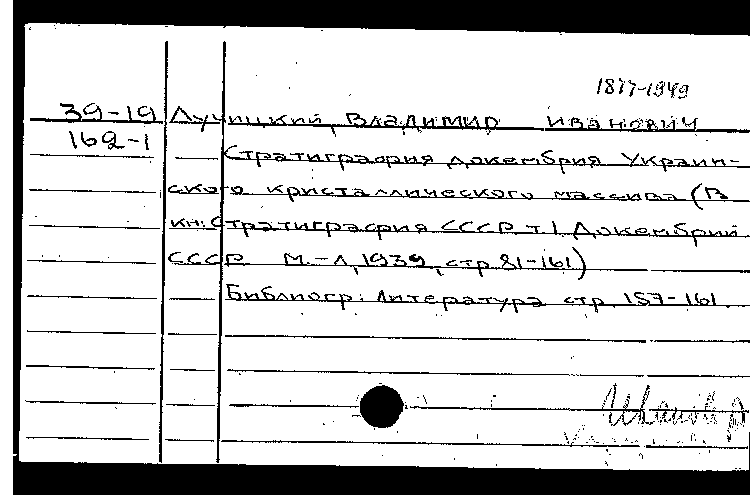 1877-1949
39-19 Лучицкий, Владимир Иванович
162-1 Стратиграфия докембрия Украин-
ского кристаллического массива (В
кн: Стратиграфия СССР т.1 Докембрий
СССР М.-Л, 1939, стр 81-161)
Библиогр: Литература стр 157-161.